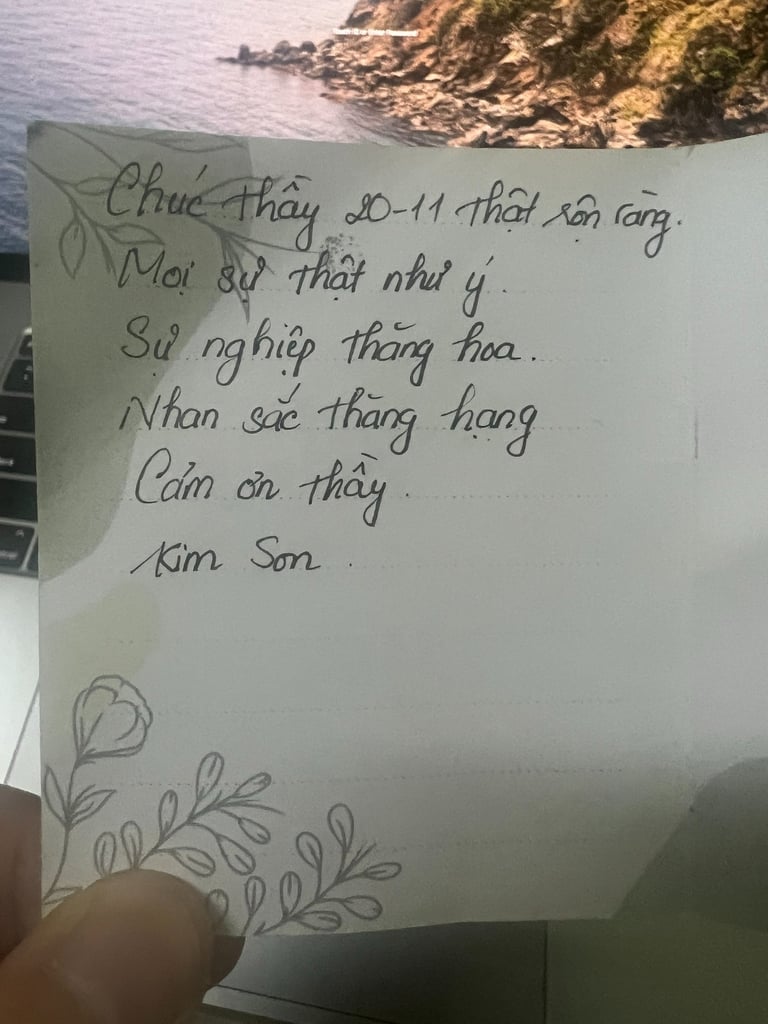 Chúc thầy 20-11 thật rộn ràng.
Mọi sự thật như ý.
Sự nghiệp thăng hoa.
Nhan sắc thăng hạng
Cảm ơn thầy.
Kim Son.